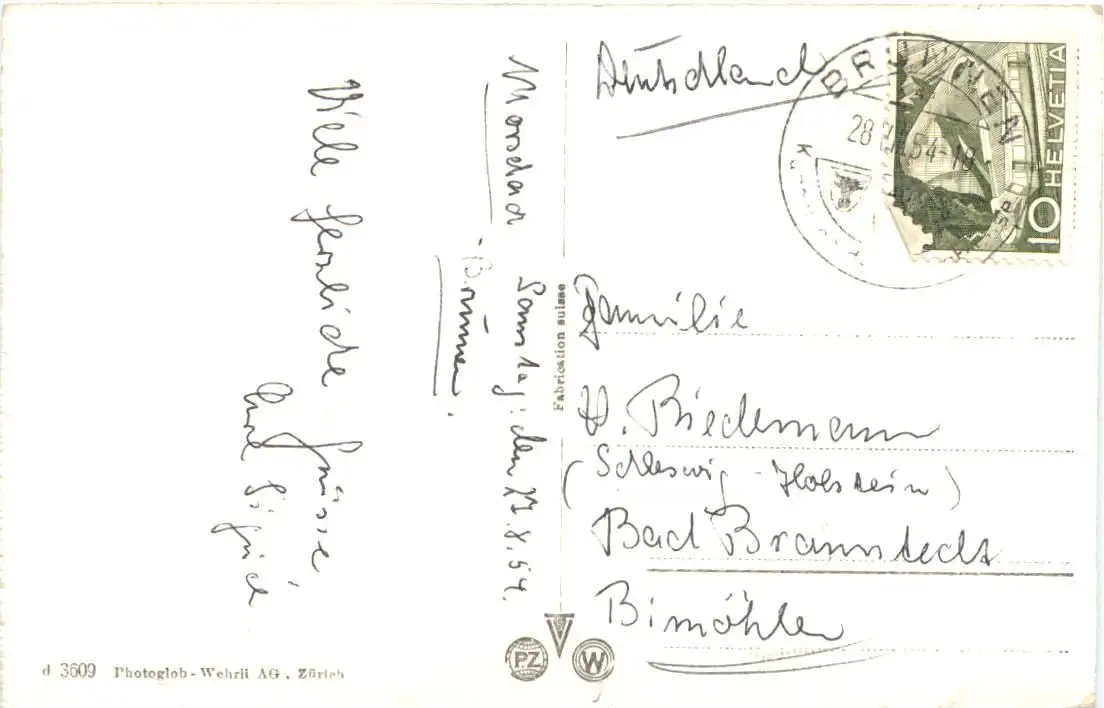 Morschach
- Brunnen.
Samstag, den 27.8.54.
Viele herzliche Grüsse
Eure
Deutschland
BRUNNEN
28 54-18
10 HELVETIA
Familie
H. Biedemann
(Schleswig-Holstein)
Bad Bramstedt
Bimöhlen
Fabrication suisse
PZ W
d 3609 Photoglob-Wehrli AG., Zürich